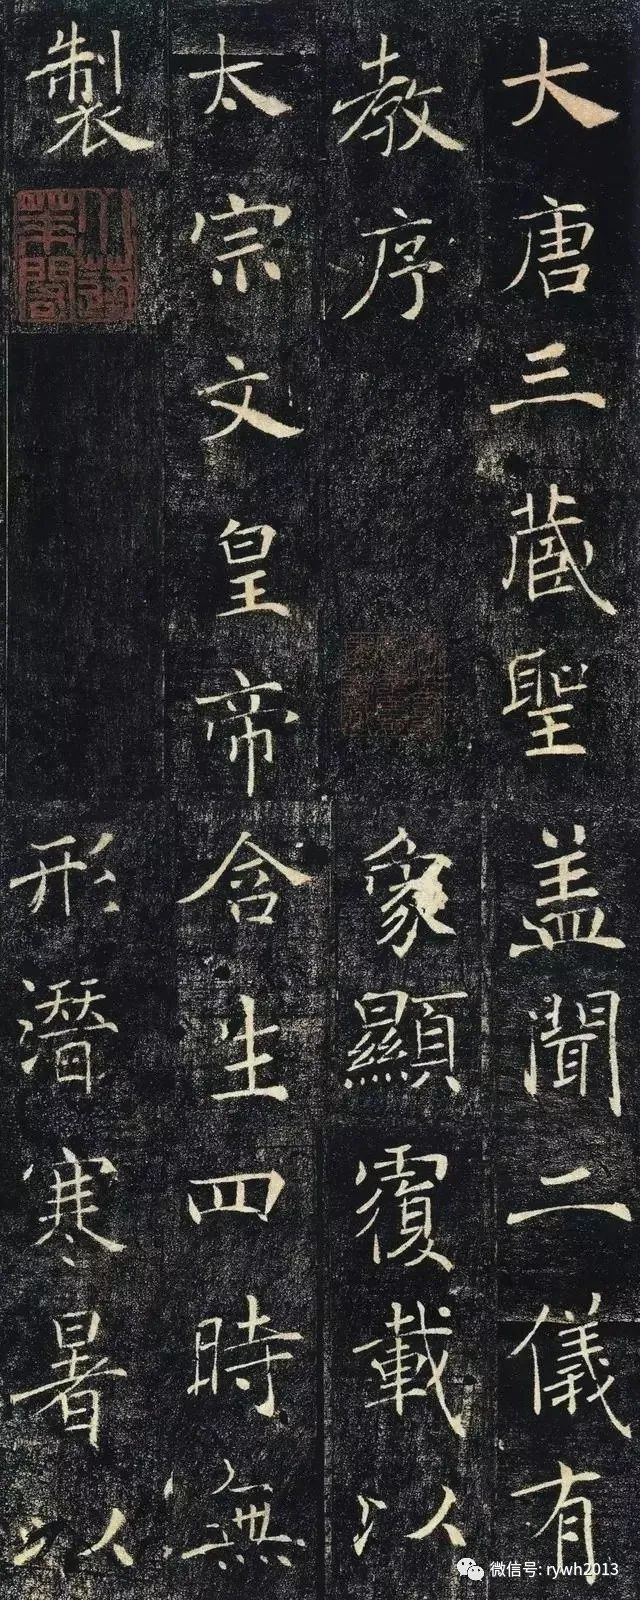 大唐三藏聖
教序
太宗文皇帝
製
盖聞二儀有
象顯覆載以
含生四時無
形潛寒暑以
微信号: rywh2013